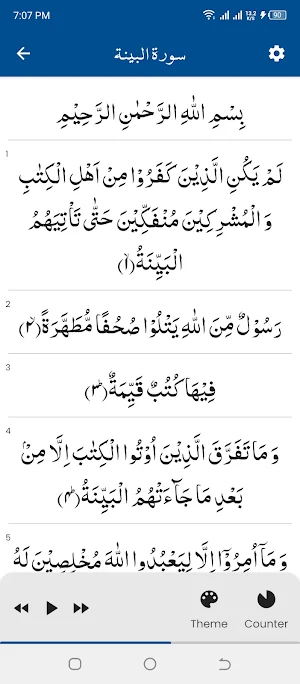 7:07 PM
13.2 K/s
90
سورة البينة
بِسْمِ اللّٰهِ الرَّحْمٰنِ الرَّحِيْمِ
1
لَمْ يَكُنِ الَّذِيْنَ كَفَرُوْا مِنْ اَهْلِ الْكِتٰبِ
وَالْمُشْرِكِيْنَ مُنْفَكِّيْنَ حَتّٰى تَاْتِيَهُمُ
الْبَيِّنَةُ﴿۱﴾
2
رَسُوْلٌ مِّنَ اللّٰهِ يَتْلُوْا صُحُفًا مُّطَهَّرَةً﴿۲﴾
3
فِيْهَا كُتُبٌ قَيِّمَةٌ﴿۳﴾
4
وَمَا تَفَرَّقَ الَّذِيْنَ اُوْتُوا الْكِتٰبَ اِلَّا مِنْۢ
بَعْدِ مَا جَآءَتْهُمُ الْبَيِّنَةُ﴿۴﴾
5
وَمَاۤ اُمِرُوْۤا اِلَّا لِيَعْبُدُوا اللّٰهَ مُخْلِصِيْنَ لَهُ
Theme
Counter